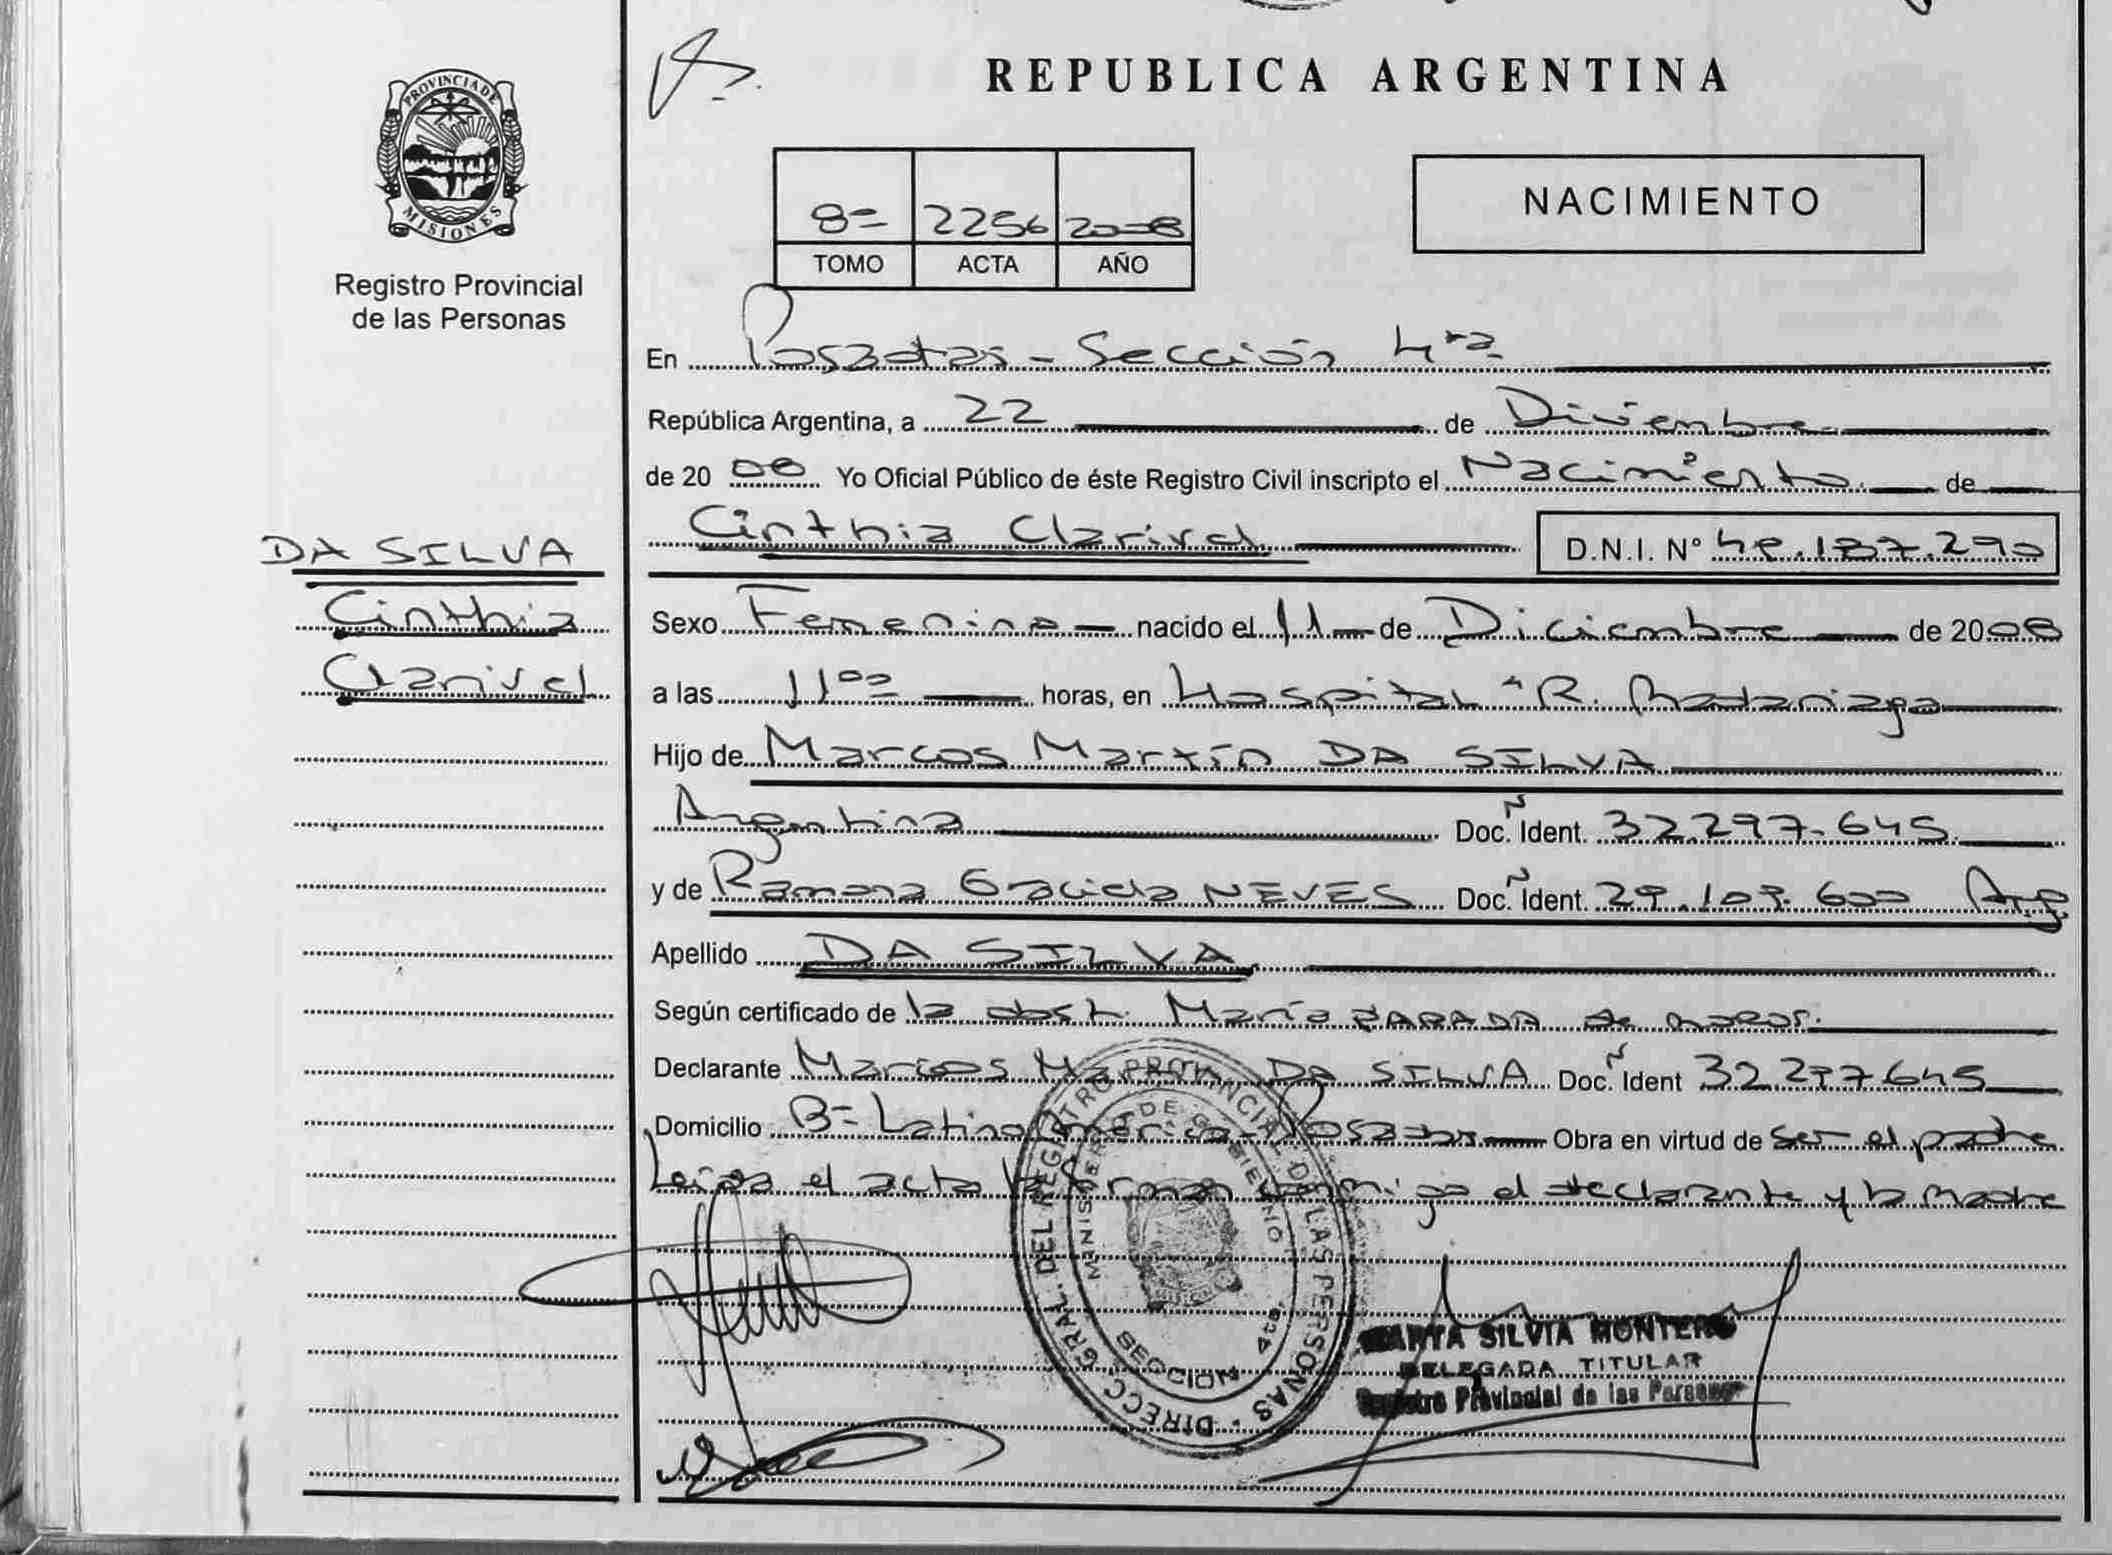 PROVINCIA DE
MISIONES
Registro Provincial
de las Personas
DA SILVA
Cinthia
Clarivel
REPUBLICA ARGENTINA
8º 2256 2008
TOMO ACTA AÑO
NACIMIENTO
En Posadas - Sección 4ta
República Argentina, a 22 de Diciembre
de 2008 Yo Oficial Público de éste Registro Civil inscripto el Nacimiento de
Cinthia Clarivel D.N.I. Nº
Sexo Femenino nacido el 11 de Diciembre de 2008
a las 11ºº horas, en Hospital "R. Madariaga
Hijo de Marcos Martín DA SILVA
Argentina Doc. Ident. 32.297.645
y de Ramona NEVES Doc. Ident. 29.109.600 Arg
Apellido DA SILVA
Según certificado de la obst. María
Declarante Marcos Martín DA SILVA Doc. Ident 32.297.645
Domicilio Bº Latinoamérica - Posadas Obra en virtud de ser el padre
Leída el acta la firman conmigo el declarante y la madre
DIRECC. GRAL. DEL REGISTRO PROVINCIAL DE LAS PERSONAS
MINISTERIO DE GOBIERNO
SECCION 4ta.
MARTA SILVIA MONTERO
DELEGADA TITULAR
Registro Provincial de las Personas